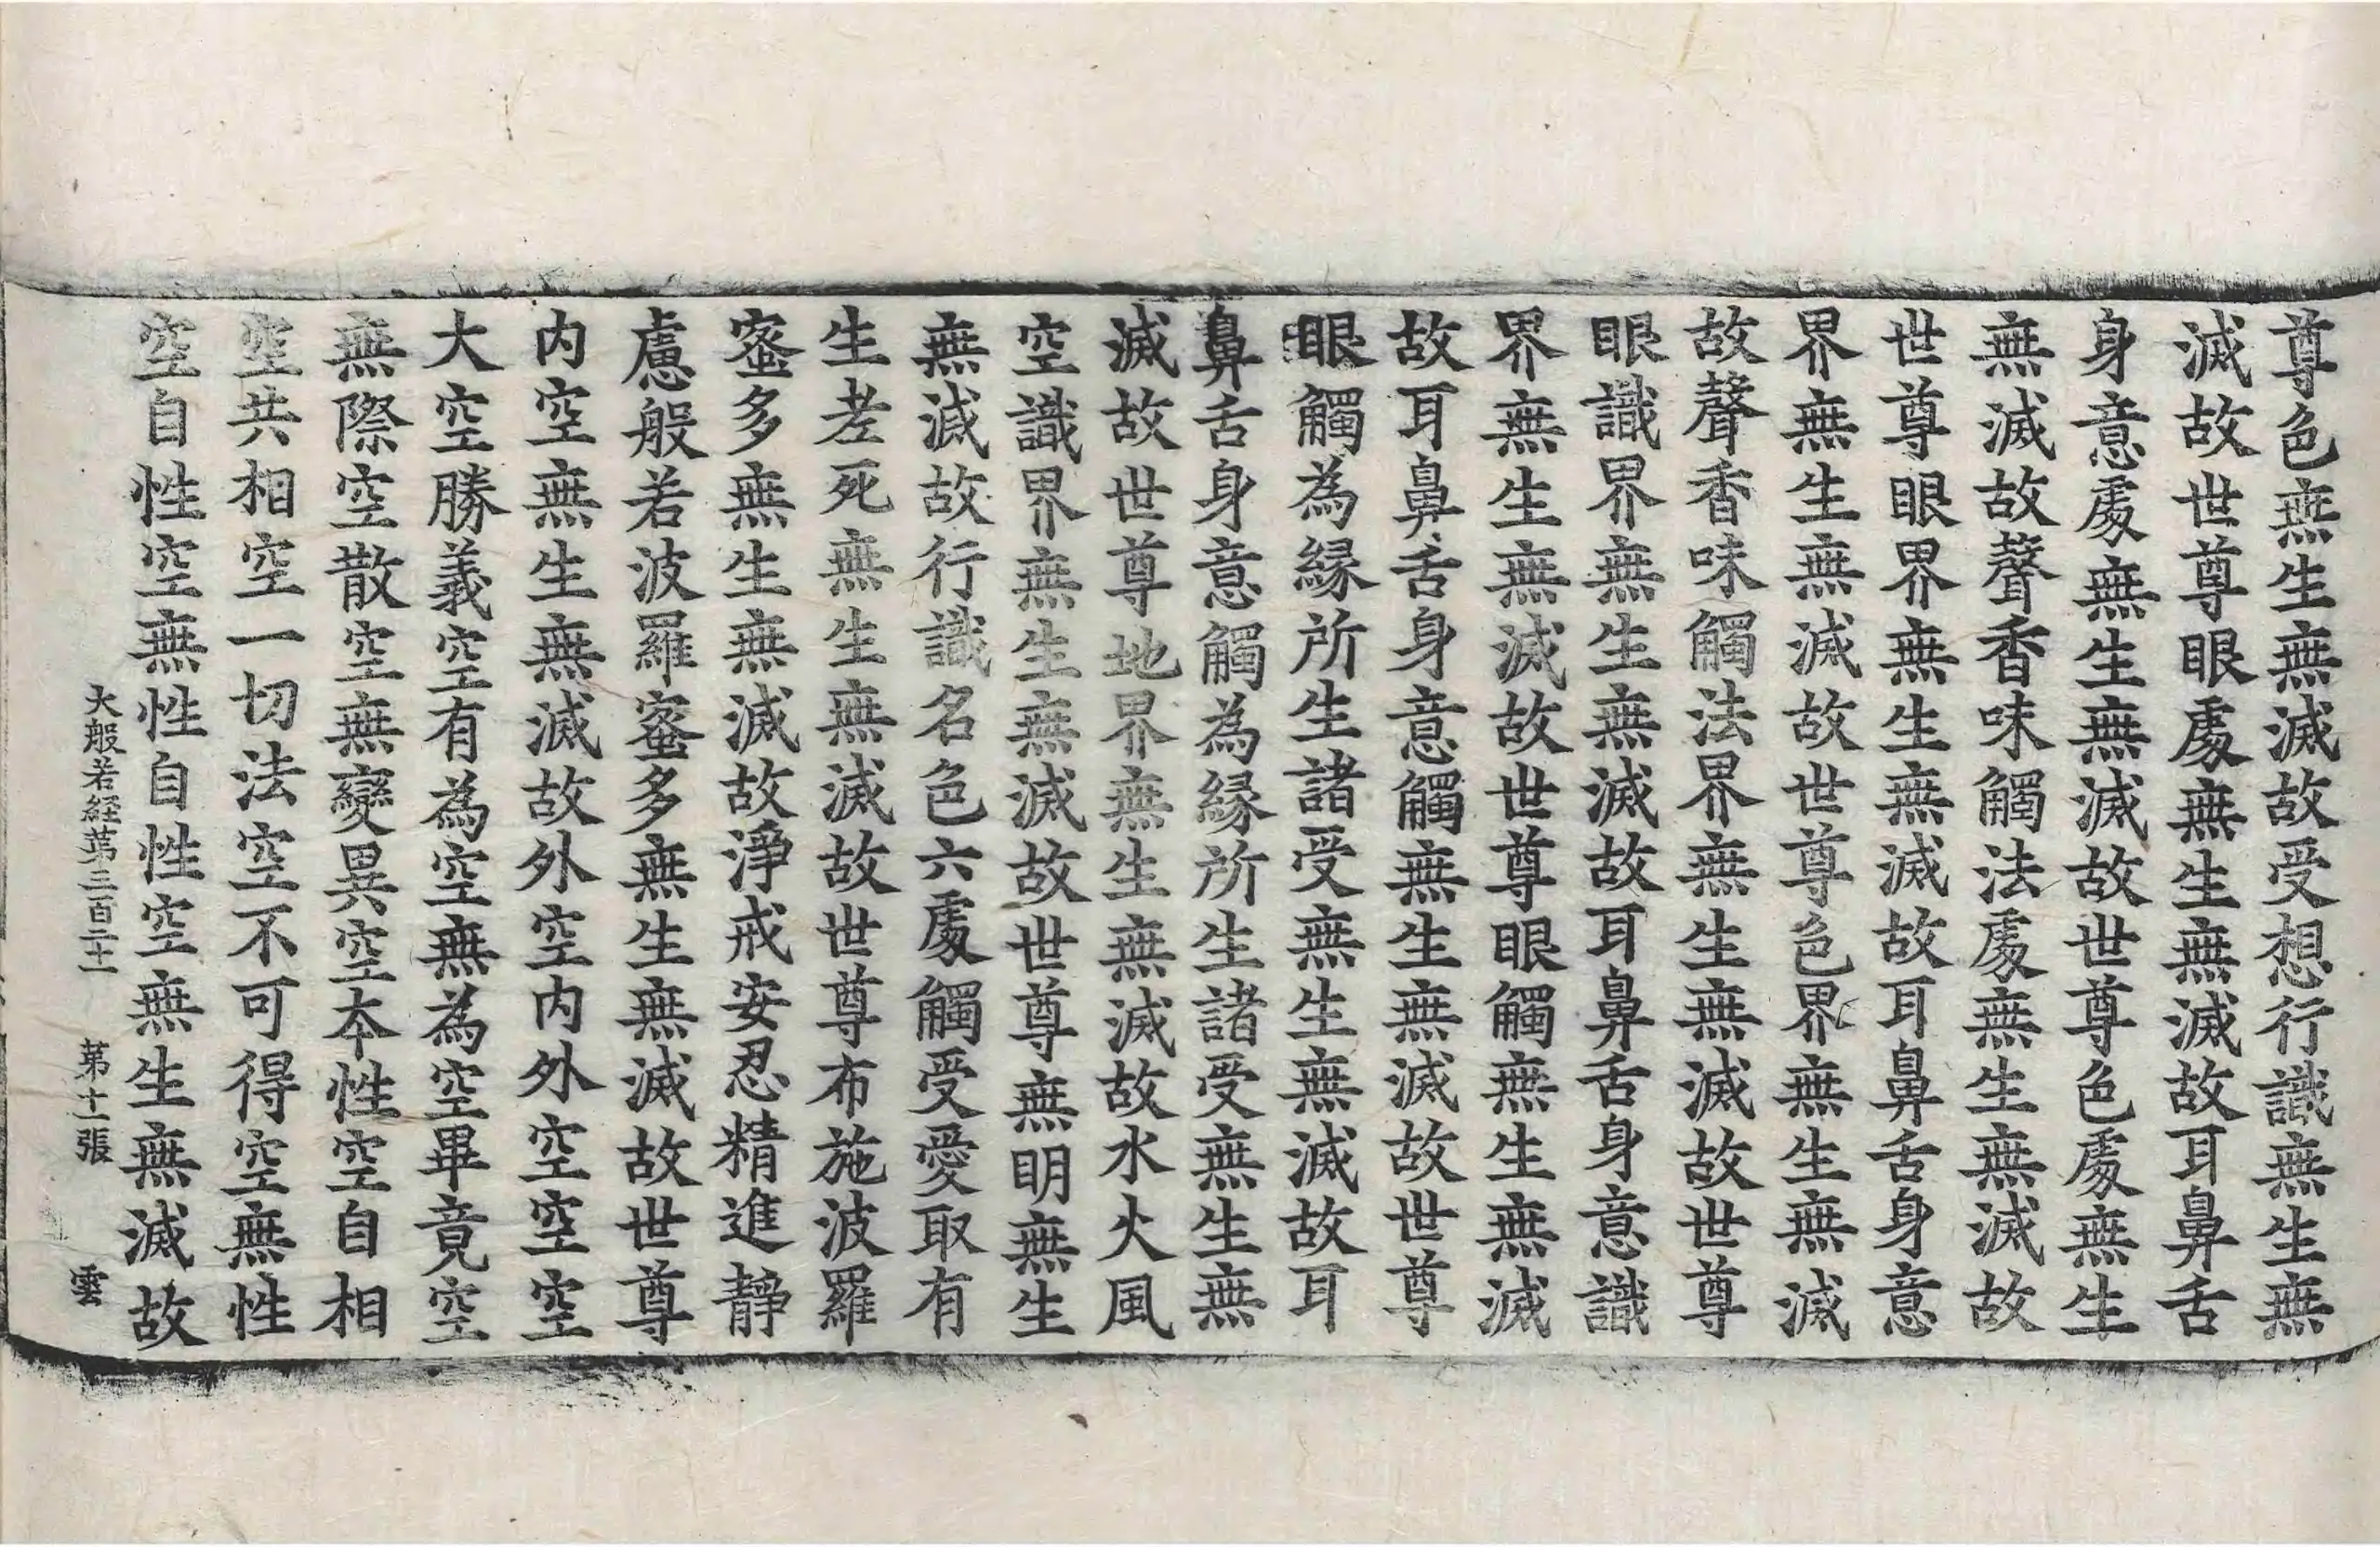 尊色無生無滅故受想行識無生無
滅故世尊眼處無生無滅故耳鼻舌
身意處無生無滅故世尊色處無生
無滅故聲香味觸法處無生無滅故
世尊眼界無生無滅故耳鼻舌身意
界無生無滅故世尊色界無生無滅
故聲香味觸法界無生無滅故世尊
眼識界無生無滅故耳鼻舌身意識
界無生無滅故世尊眼觸無生無滅
故耳鼻舌身意觸無生無滅故世尊
眼觸為緣所生諸受無生無滅故耳
鼻舌身意觸為緣所生諸受無生無
滅故世尊地界無生無滅故水火風
空識界無生無滅故世尊無明無生
無滅故行識名色六處觸受愛取有
生老死無生無滅故世尊布施波羅
蜜多無生無滅故淨戒安忍精進靜
慮般若波羅蜜多無生無滅故世尊
内空無生無滅故外空内外空空空
大空勝義空有為空無為空畢竟空
無際空散空無變異空本性空自相
空共相空一切法空不可得空無性
空自性空無性自性空無生無滅故
大般若経苐三百二十一　苐十一張　雲